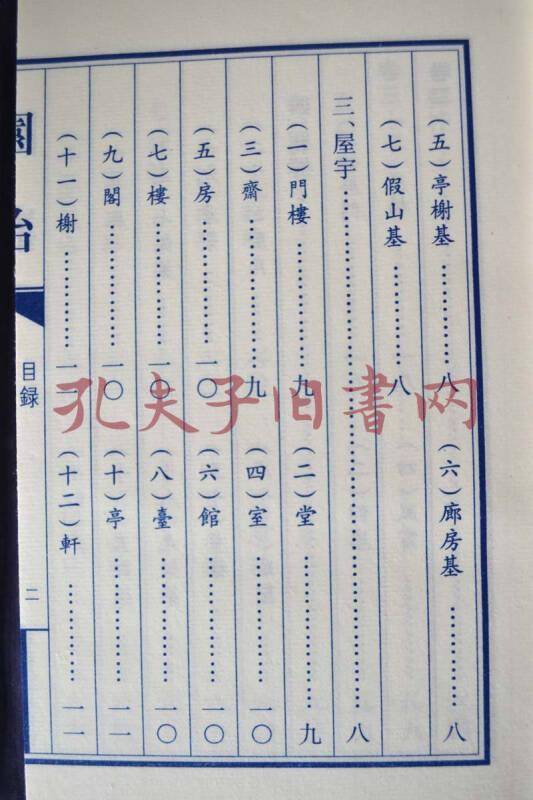 （五）亭榭基…………八　（六）廊房基…………八
（七）假山基…………八
三、屋宇…………八
（一）門樓…………九　（二）堂…………九
（三）齋…………九　（四）室…………一〇
（五）房…………一〇　（六）館…………一〇
（七）樓…………一〇　（八）臺…………一〇
（九）閣…………一〇　（十）亭…………一一
（十一）榭…………一一　（十二）軒…………一一
目録
二
孔夫子旧书网